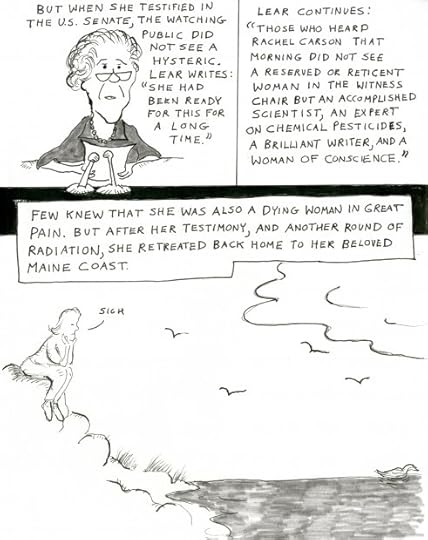 BUT WHEN SHE TESTIFIED IN
THE U.S. SENATE, THE WATCHING
PUBLIC DID
NOT SEE A
HYSTERIC.
LEAR WRITES:
"SHE HAD
BEEN READY
FOR THIS FOR
A LONG
TIME."
LEAR CONTINUES:
"THOSE WHO HEARD
RACHEL CARSON THAT
MORNING DID NOT SEE
A RESERVED OR RETICENT
WOMAN IN THE WITNESS
CHAIR BUT AN ACCOMPLISHED
SCIENTIST, AN EXPERT
ON CHEMICAL PESTICIDES,
A BRILLIANT WRITER, AND A
WOMAN OF CONSCIENCE."
FEW KNEW THAT SHE WAS ALSO A DYING WOMAN IN GREAT
PAIN. BUT AFTER HER TESTIMONY, AND ANOTHER ROUND OF
RADIATION, SHE RETREATED BACK HOME TO HER BELOVED
MAINE COAST.
SIGH